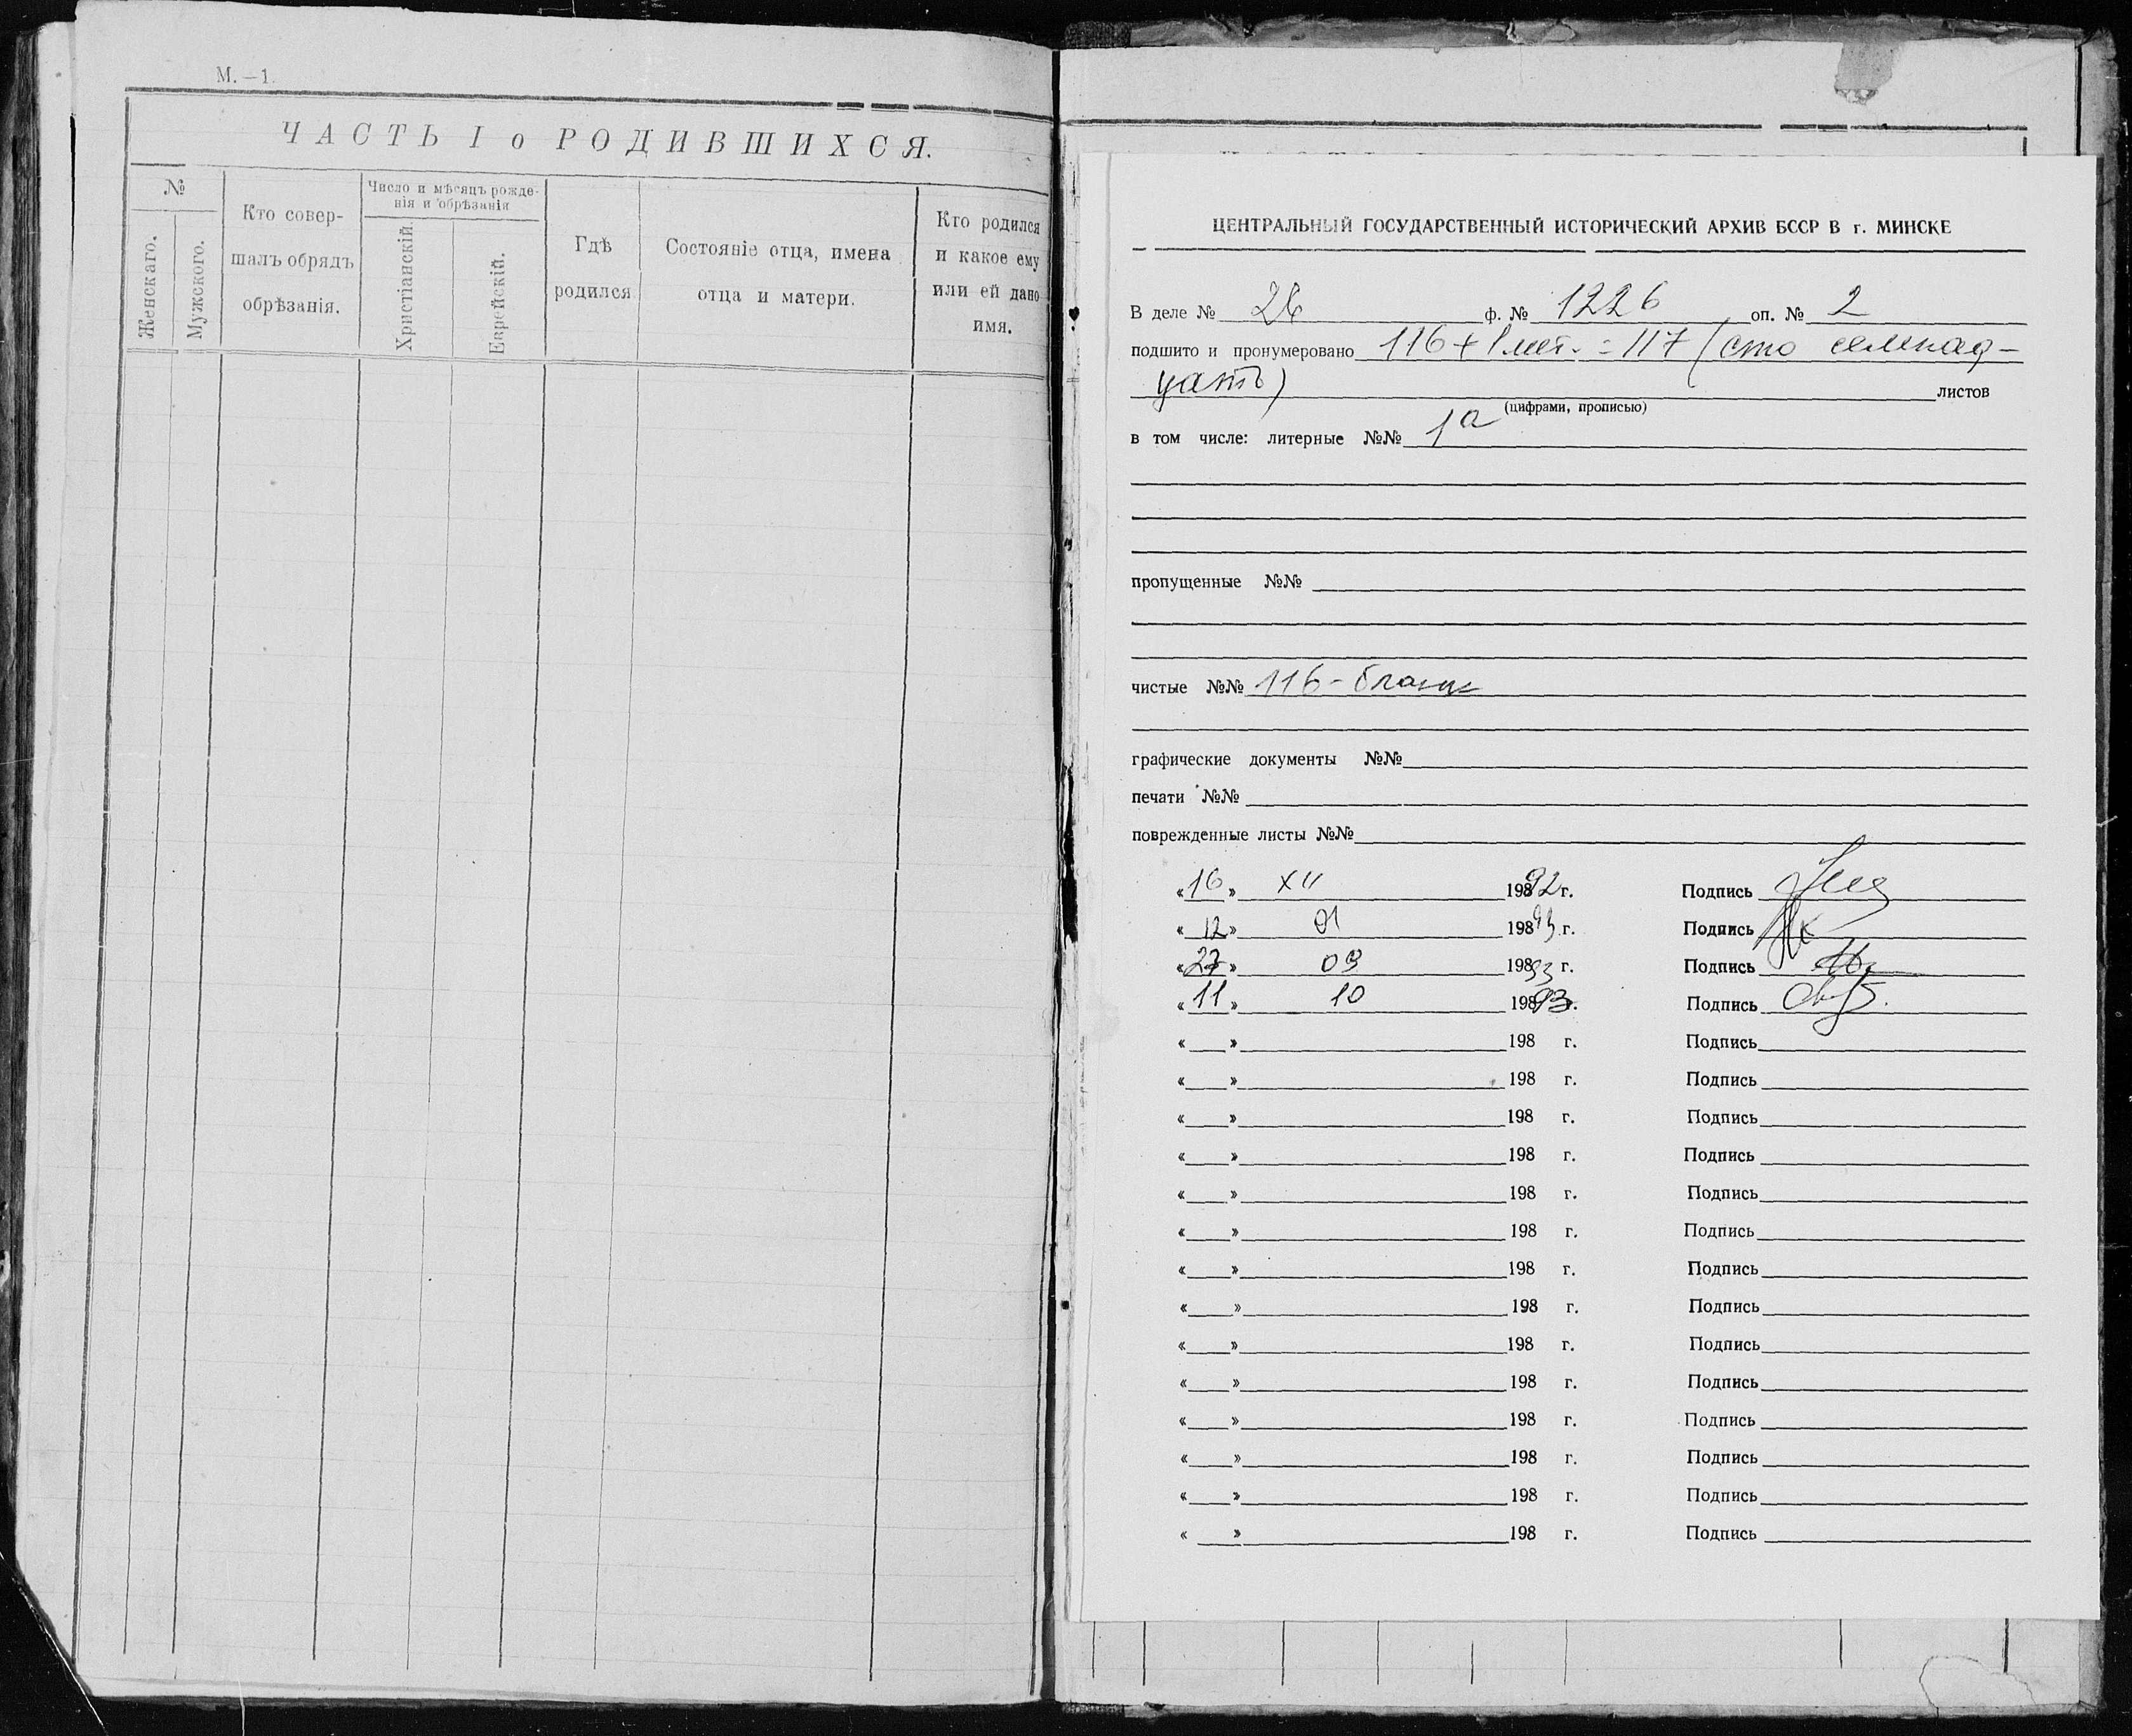 М.—1.
ЧАСТЬ I о РОДИВШИХСЯ.
№
Женскаго.
Мужского.
Кто совер-
шалъ обрядъ
обрѣзанія.
Число и мѣсяцъ рожде-
нія и обрѣзанія
Христіанскій.
Еврейскій.
Гдѣ
родился
Состояніе отца, имена
отца и матери.
Кто родился
и какое ему
или ей дано
имя.
ЦЕНТРАЛЬНЫЙ ГОСУДАРСТВЕННЫЙ ИСТОРИЧЕСКИЙ АРХИВ БССР В г. МИНСКЕ
В деле № ф. № 1226 оп. № 2
подшито и пронумеровано 116 + 1 лит. = 117 (сто семнад-
цать) листов
(цифрами, прописью)
в том числе: литерные №№ 1а
пропущенные №№
чистые №№ 116 - бланк
графические документы №№
печати №№
поврежденные листы №№
«16» XII 19892 г. Подпись
«12» 01 19893 г. Подпись
«27» 09 19893 г. Подпись
«11» 10 19893 г. Подпись
« » 198 г. Подпись
« » 198 г. Подпись
« » 198 г. Подпись
« » 198 г. Подпись
« » 198 г. Подпись
« » 198 г. Подпись
« » 198 г. Подпись
« » 198 г. Подпись
« » 198 г. Подпись
« » 198 г. Подпись
« » 198 г. Подпись
« » 198 г. Подпись
« » 198 г. Подпись
« » 198 г. Подпись